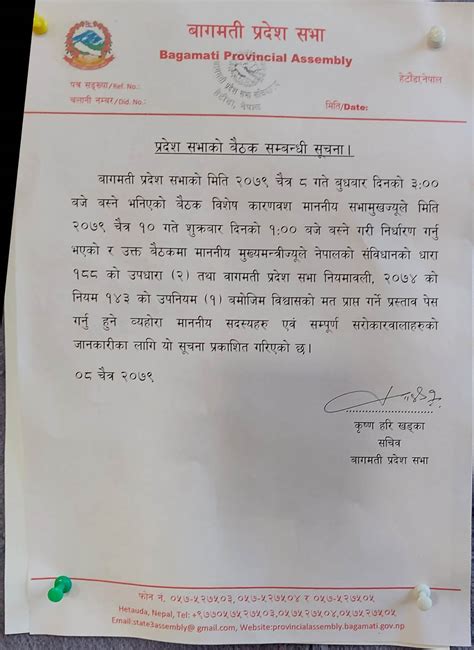 बागमती प्रदेश सभा
Bagamati Provincial Assembly
पत्र सङ्ख्या/Ref. No.:
चलानी नम्बर/Did. No.:
हेटौंडा, नेपाल
मिति/Date:
बागमती प्रदेश सभा सचिवालय
हेटौंडा, नेपाल
प्रदेश सभाको बैठक सम्बन्धी सूचना।
बागमती प्रदेश सभाको मिति २०७९ चैत्र ८ गते बुधबार दिनको ३:००
बजे बस्ने भनिएको बैठक विशेष कारणवश माननीय सभामुखज्यूले मिति
२०७९ चैत्र १० गते शुक्रबार दिनको १:०० बजे बस्ने गरी निर्धारण गर्नु
भएको र उक्त बैठकमा माननीय मुख्यमन्त्रीज्यूले नेपालको संविधानको धारा
१८८ को उपधारा (२) तथा बागमती प्रदेश सभा नियमावली, २०७४ को
नियम १४३ को उपनियम (१) बमोजिम विश्वासको मत प्राप्त गर्ने प्रस्ताव पेस
गर्नु हुने व्यहोरा माननीय सदस्यहरु एवं सम्पूर्ण सरोकारवालाहरुको
जानकारीका लागि यो सूचना प्रकाशित गरिएको छ।
०८ चैत्र २०७९
कृष्ण हरि खड्का
सचिव
बागमती प्रदेश सभा
फोन नं. ०५७-५२७५०३, ०५७-५२७५०४ र ०५७-५२७५०५
Hetauda, Nepal, Tel: +९७७०५७५२७५०३,०५७५२७५०४,०५७५२७५०५
Email:state3assembly@ gmail.com, Website:provincialassembly.bagamati.gov.np